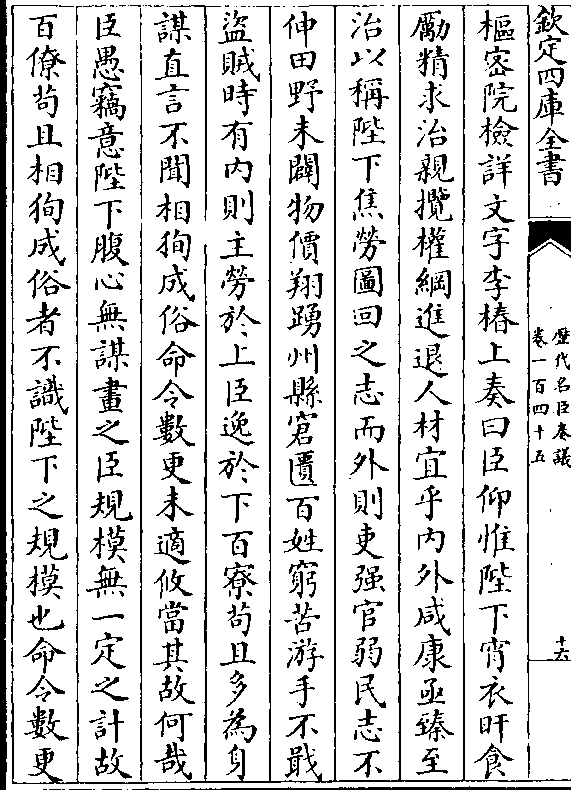 欽定四庫全書
歷代名臣奏議
卷一百四十五
十六
樞密院檢詳文字李椿上奏曰臣仰惟陛下宵衣旰食
勵精求治親攬權綱進退人材宜乎内外咸康亟臻至
治以稱陛下焦勞圖回之志而外則吏强官弱民志不
伸田野未闢物價翔踴州縣窘匱百姓窮苦游手不戢
盜賊時有内則主勞於上臣逸於下百寮苟且多為身
謀直言不聞相狥成俗命令數更未適攸當其故何哉
臣愚竊意陛下腹心無謀畫之臣規模無一定之計故
百僚苟且相狥成俗者不識陛下之規模也命令數更